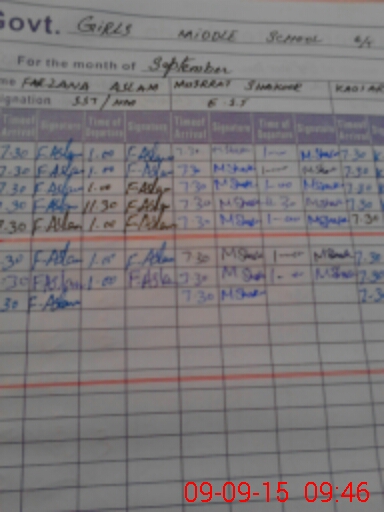 Govt. GIRLS MIDDLE SCHOOL
For the month of September
me FARZANA ASLAM MUSRRAT SHAKOOR
signation SST / HM E.S.T
Time of Arrival Signature Time of Departure Signature Time of Arrival Signature Time of Departure Signature Time of Arrival
7.30 F.Aslam 1.00 F.Aslam 7.30 M.Shakoor 1.00 M.Shakoor 7.30
7.30 F.Aslam 1.00 F.Aslam 7.30 M.Shakoor 1.00 M.Shakoor 7.30
7.30 F.Aslam 1.00 F.Aslam 7.30 M.Shakoor 1.00 M.Shakoor 7.30
.30 F.Aslam 11.30 F.Aslam 7.30 M.Shakoor 11.30 M.Shakoor 7.30
7.30 F.Aslam 1.00 F.Aslam 7.30 M.Shakoor 1.00 M.Shakoor 7.30
.30 F.Aslam 1.00 F.Aslam 7.30 M.Shakoor 1.00 M.Shakoor 7.30
.30 F.Aslam 1.00 F.Aslam 7.30 M.Shakoor 1.00 M.Shakoor 7.30
30 F.Aslam 7.30 M.Shakoor 7.30
09-09-15 09:46